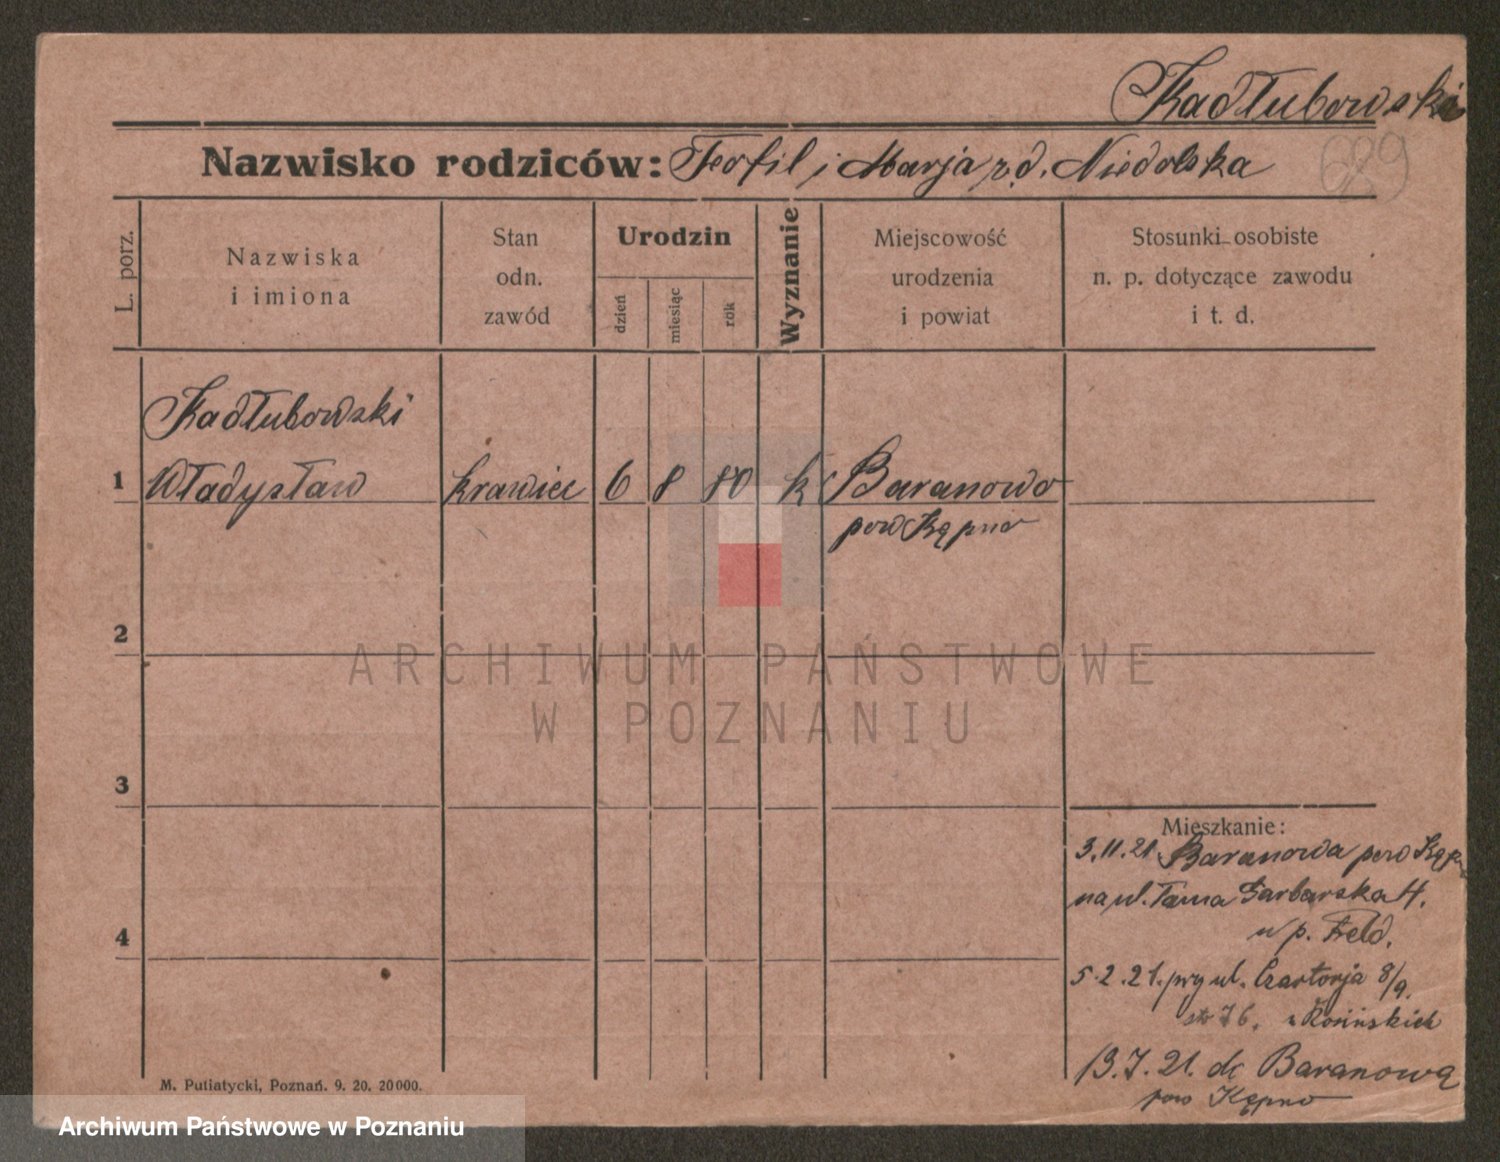 Kadłubowski
Nazwisko rodziców: Teofil i Marja rod. Niedolska
629
L. porz.
Nazwiska
i imiona
Stan
odn.
zawód
Urodzin
dzień
miesiąc
rok
Wyznanie
Miejscowość
urodzenia
i powiat
Stosunki osobiste
n. p. dotyczące zawodu
i t. d.
Kadłubowski
1 Władysław krawiec 6 8 80 k Baranowo
pow Kępno
2
ARCHIWUM PAŃSTWOWE
W POZNANIU
3
Mieszkanie:
3.11.21 Baranowa pow Kęp
na ul. Tama Garbarska 4.
u p. Feld.
4
5.2.21. przy ul. Czartorja 8/9.
76. u Kosińskich
13.7.21. do Baranowa
pow Kępno
M. Putiatycki, Poznań. 9. 20. 20000.
Archiwum Państwowe w Poznaniu